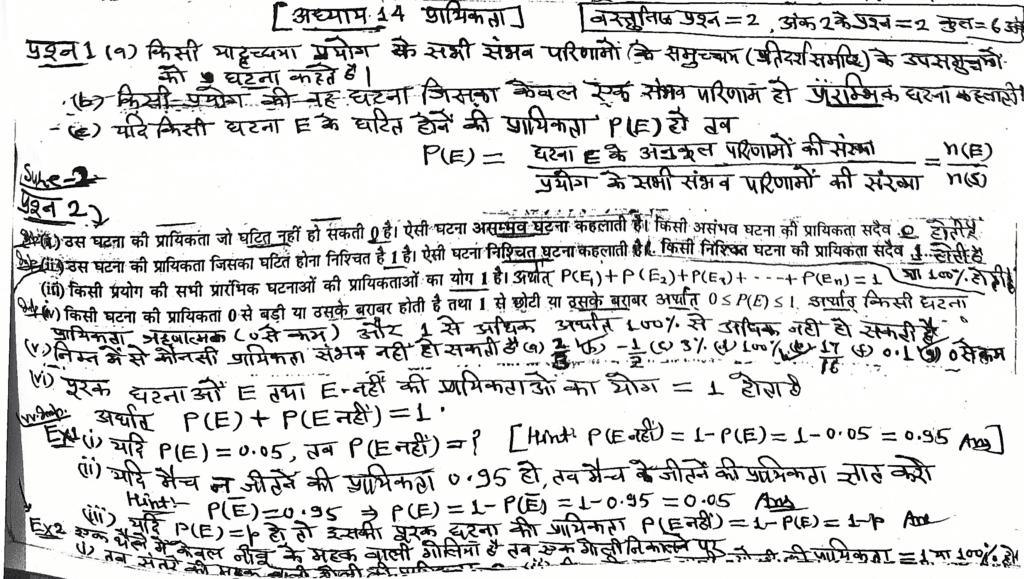 [अध्याय 14 प्रायिकता] [वस्तुनिष्ठ प्रश्न = 2, अंक 2 के प्रश्न = 2 कुल = 6 अंक
प्रश्न 1 (a) किसी यादृच्छया प्रयोग के सभी संभव परिणामों (के समुच्चय (प्रतिदर्श समष्टि) के उपसमुच्चयों
को घटना कहते है।
(b) किसी प्रयोग की वह घटना जिसका केवल एक संभव परिणाम हो प्रारम्भिक घटना कहलाती
(c) यदि किसी घटना E के घटित होने की प्रायिकता P(E) हो तब
P(E) = घटना E के अनुकूल परिणामों की संख्या / प्रयोग के सभी संभव परिणामों की संख्या = n(E) / n(S)
प्रश्न 2)
(i) उस घटना की प्रायिकता जो घटित नहीं हो सकती 0 है। ऐसी घटना असम्भव घटना कहलाती है। किसी असंभव घटना की प्रायिकता सदैव 0 होती है
(ii) उस घटना की प्रायिकता जिसका घटित होना निश्चित है 1 है। ऐसी घटना निश्चित घटना कहलाती है। किसी निश्चित घटना की प्रायिकता सदैव 1 होती है
(iii) किसी प्रयोग की सभी प्रारंभिक घटनाओं की प्रायिकताओं का योग 1 है। अर्थात् P(E₁)+P(E₂)+P(E₃)+-----+P(Eₙ)=1 या 100% होती है
(iv) किसी घटना की प्रायिकता 0 से बड़ी या उसके बराबर होती है तथा 1 से छोटी या उसके बराबर अर्थात् 0 ≤ P(E) ≤ 1. अर्थात् किसी घटना
प्रायिकता ऋणात्मक (0 से कम) और 1 से अधिक अर्थात् 100% से अधिक नहीं हो सकती है
(v) निम्न में से कौनसी प्रायिकता संभव नहीं हो सकती है (a) 2/3 (b) -1/2 (c) 3% (d) 100% (e) 17/16 (f) 0.1 (g) 0 से कम
(vi) पूरक घटनाओं E तथा E-नहीं की प्रायिकताओं का योग = 1 होता है
अर्थात् P(E) + P(E नहीं) = 1.
Ex1 (i) यदि P(E) = 0.05, तब P(E नहीं) = ? [Hint:- P(E नहीं) = 1-P(E) = 1-0.05 = 0.95 Ans]
(ii) यदि मैच न जीतने की प्रायिकता 0.95 हो, तब मैच के जीतने की प्रायिकता ज्ञात करो
Hint:- P(Ē) = 0.95 ⇒ P(E) = 1-P(Ē) = 1-0.95 = 0.05 Ans
(iii) यदि P(E) = p हो तो इसकी पूरक घटना की प्रायिकता P(E नहीं) = 1-P(E) = 1-p Ans
Ex2 एक थैले में केवल नींबू के महक वाली गोलियाँ है तब एक गोली निकालने पर
(i) तब संतरे की महक वाली गोली की प्रायिकता की प्रायिकता = 1 या 100% होगी